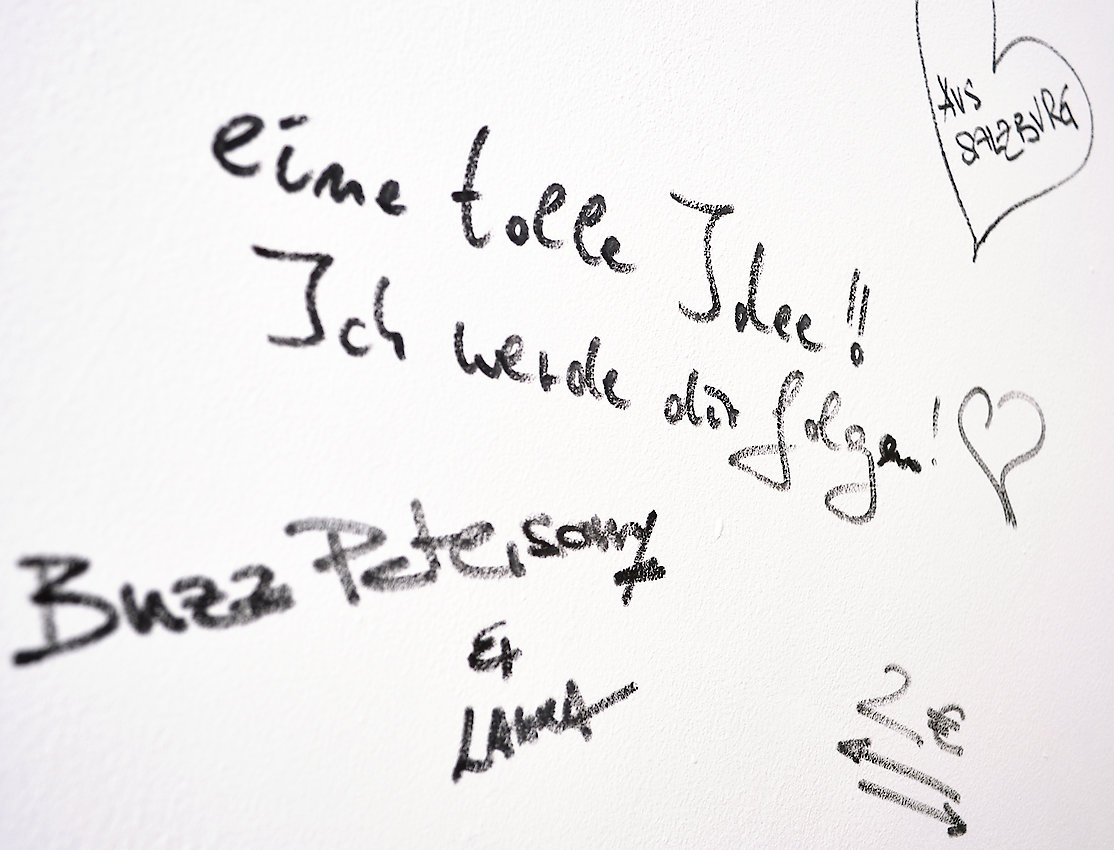 AUS
SALZBURG
eine tolle Idee!!
Ich werde dir folgen!
Buzz Peterson
&
LAURA
2 €